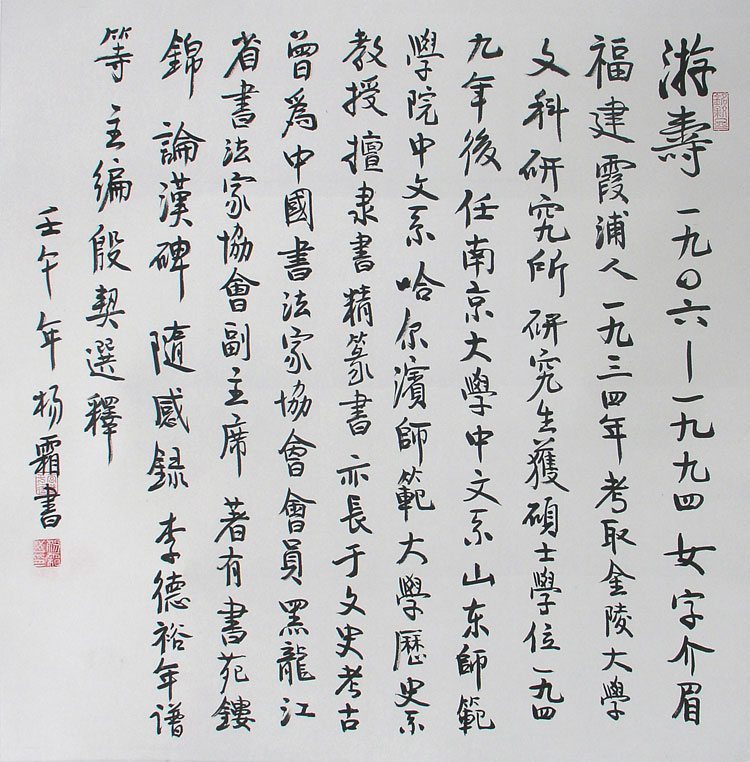 游壽 一九〇六—一九九四 女 字介眉
福建霞浦人 一九三四年考取金陵大學
文科研究所 研究生 獲碩士學位 一九四
九年後任南京大學中文系 山东師範
學院中文系 哈尔濱師範大學歷史系
教授 擅隶書 精篆書 亦長于文史考古
曾爲中國書法家協會會員 黑龍江
省書法家協會副主席 著有書苑鏤
錦 論漢碑 隨感録 李德裕年谱
等 主编殷契選釋
壬午年 杨霜書